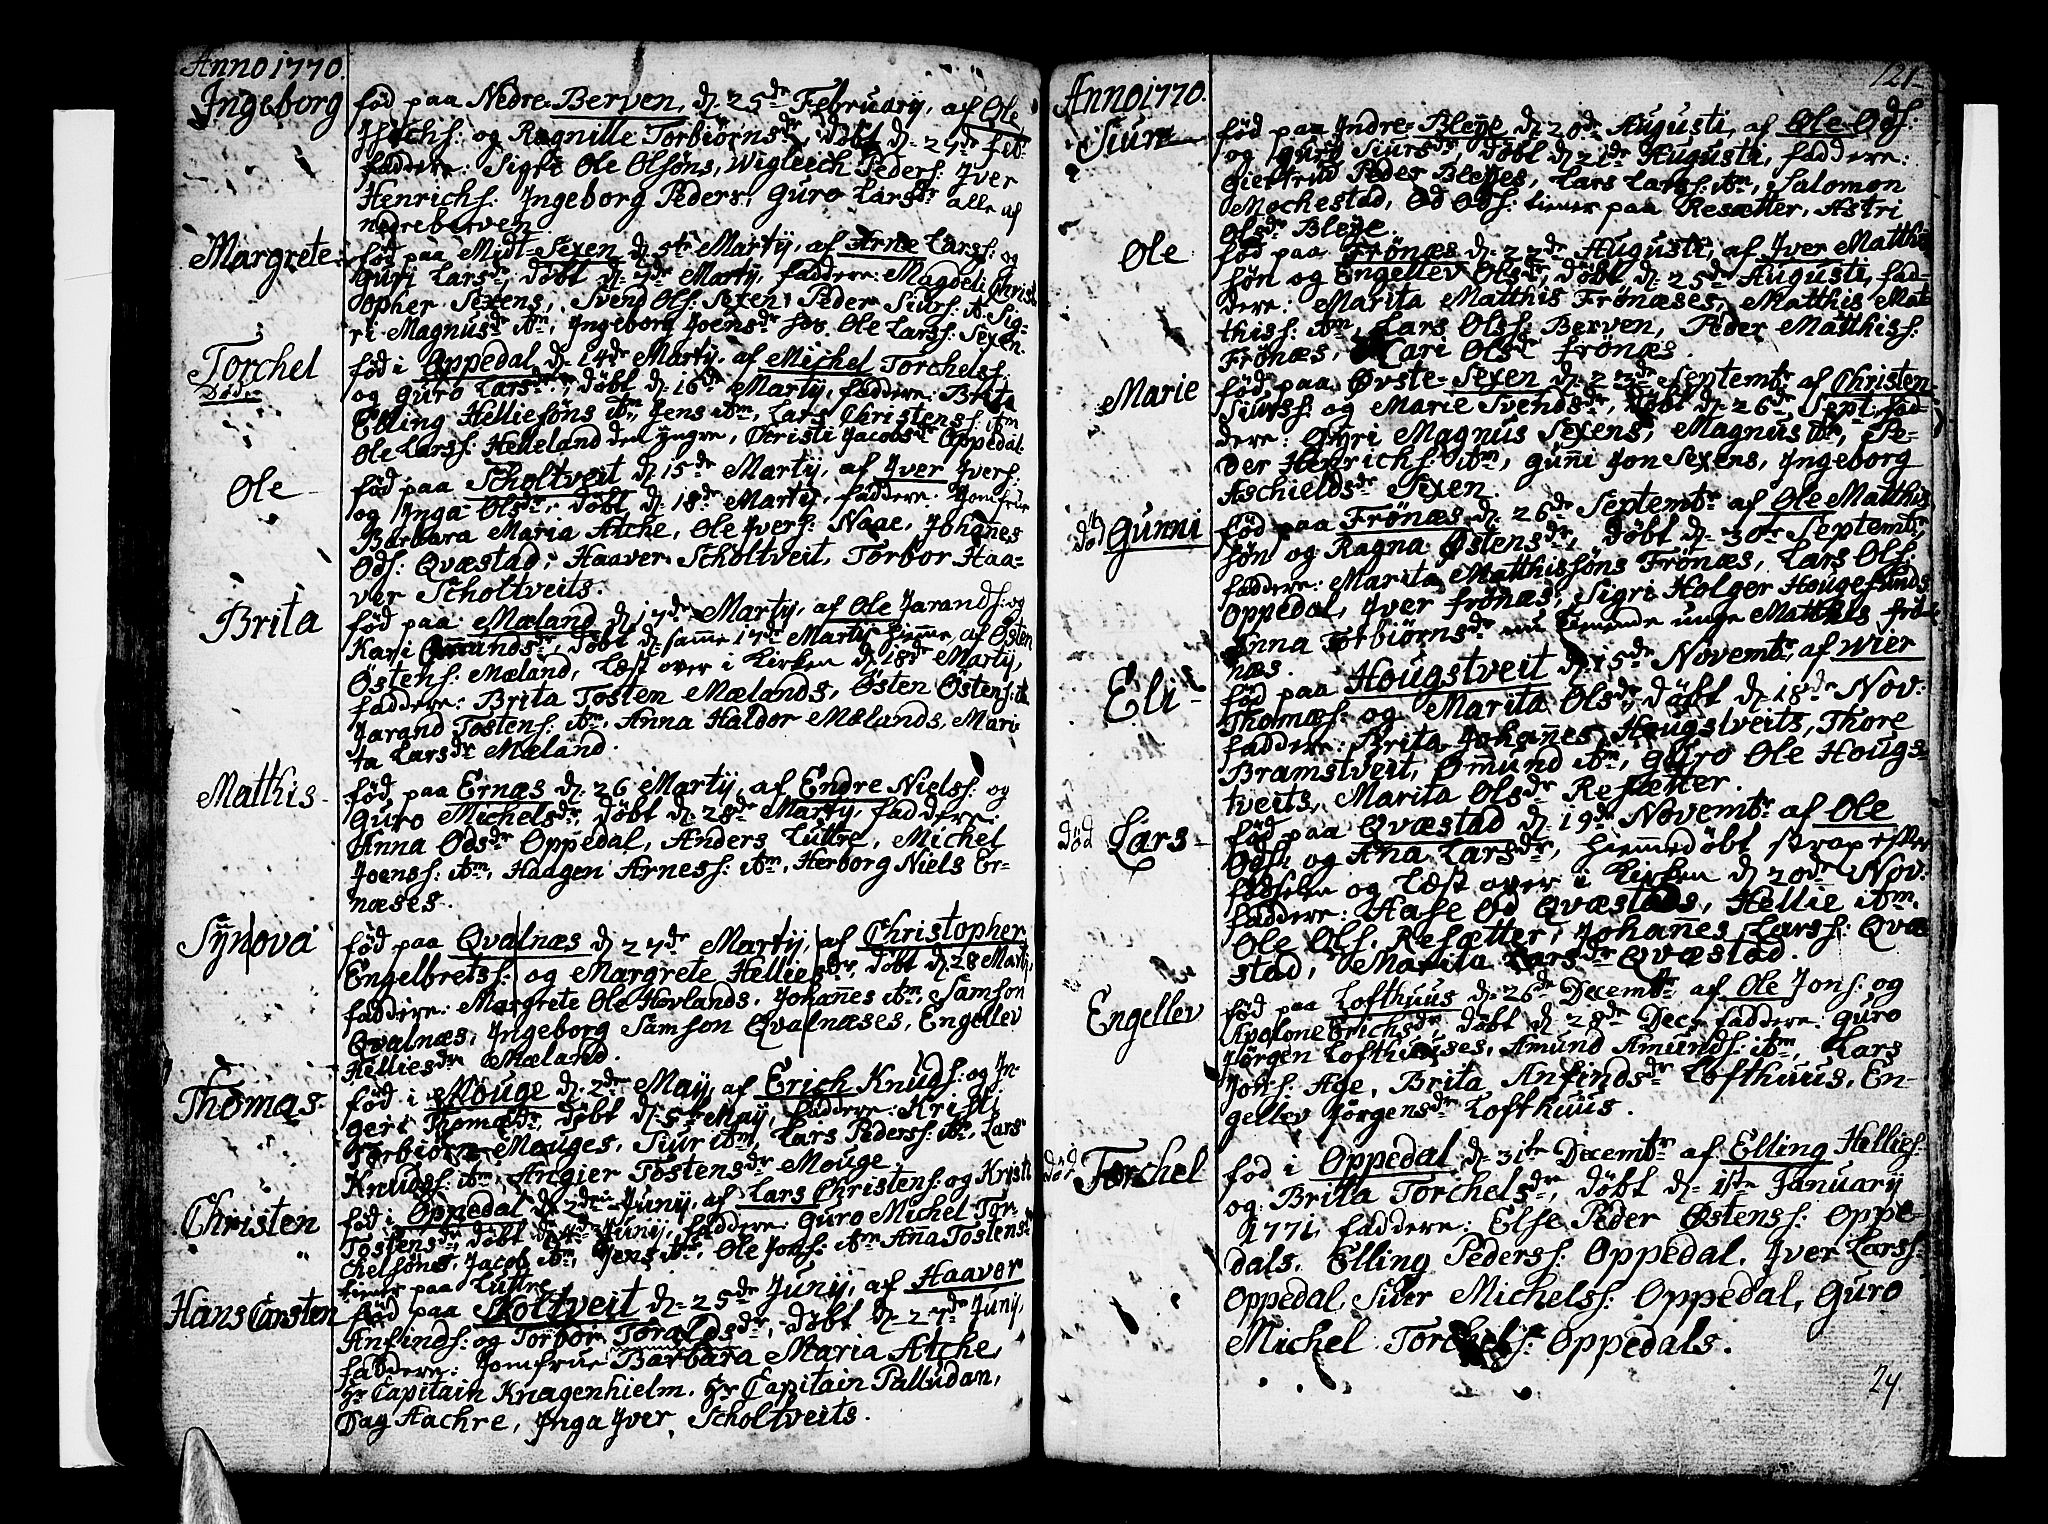 Anno 1770.
Ingeborg
fød paa Nedre Berven, d. 25de February, af Ole
og Ragnille Torbiørnsdr, døbt d. 27de feb:
faddere: Sigri Ole Olsøns, Wigleech Peders: Iver
Henrichs: Ingeborg Peders, Guro Larsdr alle af
nedreberven
Margrete
fød paa Midt-Sexen d. 5te Martij, af Arne Larss: og
Guri Larsdr, døbt d. 7de Martij, faddere: Magdeli Christ
opher Sexens, Svend Ols: Sexen, Peder Siurs: it. Sig-
ri Magnusdr itm, Ingeborg Joensdr hos Ole Larss: Sexen.
Torchel
Døde
fød i Oppedal d. 14de Martij, af Michel Torchelss:
og Guro Larsdr, døbt d. 16de Martij, faddere: Brita
Elling Helliesøns itm, Jens itm, Lars Christenss: itm
Ole Larss: Helleland den yngre, Christi Jacobsdr Oppedal.
Ole
fød paa Scholtveit d. 15de Martij, af Iver Ivers:
og Inga Olsdr, døbt d. 18de Martij, faddere: Jomfrue
Barbara Maria Atche, Ole Ivers: Naae, Johannes
Ods: Qvæstad, Haaver Scholtveit, Torbor Haa-
ver Scholtveits.
Brita
fød paa Mæland d. 17de Martij, af Ole Jarands: og
Kari Omundsdr, døbt d. samme 17de Martij hiemme af Østen
Østens: Mæland, Læst over i Kirken d. 18de Martij,
faddere: Brita Tosten Mælands, Østen Østens: itm
Jarand Tostens: itm, Anna Haldor Mælands, Mari-
ta Larsdr Mæland.
Matthis
fød paa Ernæs d. 26 Martij, af Endre Nielss: og
Guro Michelsdr, døbt d. 28de Martij, faddere:
Anna Odsdr Oppedal, Anders Luttre, Michel
Joenss: itm, Haagen Arness: itm, Herborg Niels Er-
næses.
Synova
fød paa Qvalnæs d. 27de Martij, af Christopher
Engelbretss: og Margrete Helliesdr, døbt d. 28 Martij,
faddere: Margrete Ole Hovlands, Johannes itm, Samson
Qvalnæs, Ingeborg Samson Qvalnæses, Engellev
Helliesdr Mæland.
Thomas
fød i Mouge d. 2de Maij, af Erich Knuds: og In-
geri Thomædr, døbt d. 5te Maij, faddere: Kristi
Torbiørn Mouges, Siur itm, Lars Pederss: itm, Lars
Knudss: itm, Angier Tostensdr Mouge.
Christen
fød i Oppedal d. 2den Junij, af Lars Christens: og Kristi
Tostensdr, døbt d. 4de Junij, faddere: Guro Michel Tor-
chelsøns, Jacob itm, Jens itm, Ole Jons: itm Ana Tostensdr
tiener paa Luttre
Hans Carsten
fød paa Skoltveit d. 25de Junij, af Haaver
Anfinds: og Torbor Toraldsdr, døbt d. 27de Junij,
faddere: Jomfrue Barbara Maria Atche,
Hr Capitain Knagenhielm, Hr Capitain Palludan,
Dag Aachre, Inga Iver Scholtveits.
121
Anno 1770.
Siur
fød paa Indre Bleye d. 20de Augusti, af Ole Ods:
og Guri Siursdr, døbt d. 21de Augusti, faddere:
Giertrud Peder Bleyes, Lars Larss: itm, Salomon
Mochestad, Od Ods: tiener paa Resætter, Astri
Olsdr Bleye.
Ole
fød paa Frønæs d. 22de Augusti, af Iver Matthi
søn og Engellev Olsdr, døbt d. 25de Augusti, fad-
dere: Marita Matthis Frønæses, Matthis Mat
thiss: itm, Lars Olss: Berven, Peder Matthiss:
Frønæs, Kari Olsdr Frønæs.
Marie
fød paa Øvste-Sexen d. 23de Septembr af Christen
Siurss: og Marie Svendsdr, døbt d. 26de Sept. fad-
dere: Gyri Magnus Sexens, Magnus itm, Pe-
der Henrichs: itm, Gunni Jon Sexens, Ingeborg
Aschieldsdr Sexen.
død Gunni
fød paa Frønæs d. 26de Septembr af Ole Matthis
søn og Ragna Østensdr, døbt d. 30te Septembr,
faddere: Marita Matthissøns Frønæs, Lars Ols:
Oppedal, Iver Frønæs, Sigri Holger Hougesunds
Anna Torbiørnsdr nu tienende unge Matthis Frø-
næs.
Eli
fød paa Hougstveit d. 15de Novembr, af Wier
Thomæs: og Marita Olsdr, døbt d. 18de Nov:
faddere: Brita Johannes Hougstveits, Thore
Bramstveit, Omund itm, Guro Ole Hougs-
tveits, Marita Olsdr Resætter.
død Lars
fød paa Qvæstad d. 19de Novembr af Ole
Ods: og Ana Larsdr, hiemmedøbt strax efter
fødselen og Læst over i Kirken d. 20de Nov:
faddere: Aase Od Qvæstads, Hellie itm.
Ole Ols. Resætter, Johannes Larss: Qvæ
stad, Marita Larsdr Qvæstad.
Engellev
fød paa Lofthuus d. 26de Decembr af Ole Jons: og
Apolone Erichsdr, døbt d. 28de Decr faddere: Guro
Jørgen Lofthuuses, Amund Amunds: itm, Lars
Jons: Age, Brita Anfindsdr Lofthuus, En-
gellev Jørgensdr Lofthuus.
død Torchel
fød i Oppedal d. 31te Decembr af Elling Hellies:
og Brita Torchelsdr, døbt d. 1ste January
1771, faddere: Else Peder Østenss: Oppe-
dals, Elling Pederss: Oppedal, Iver Larss:
Oppedal, Siver Michelss: Oppedal, Guro
Michel Torchels: Oppedals.
24